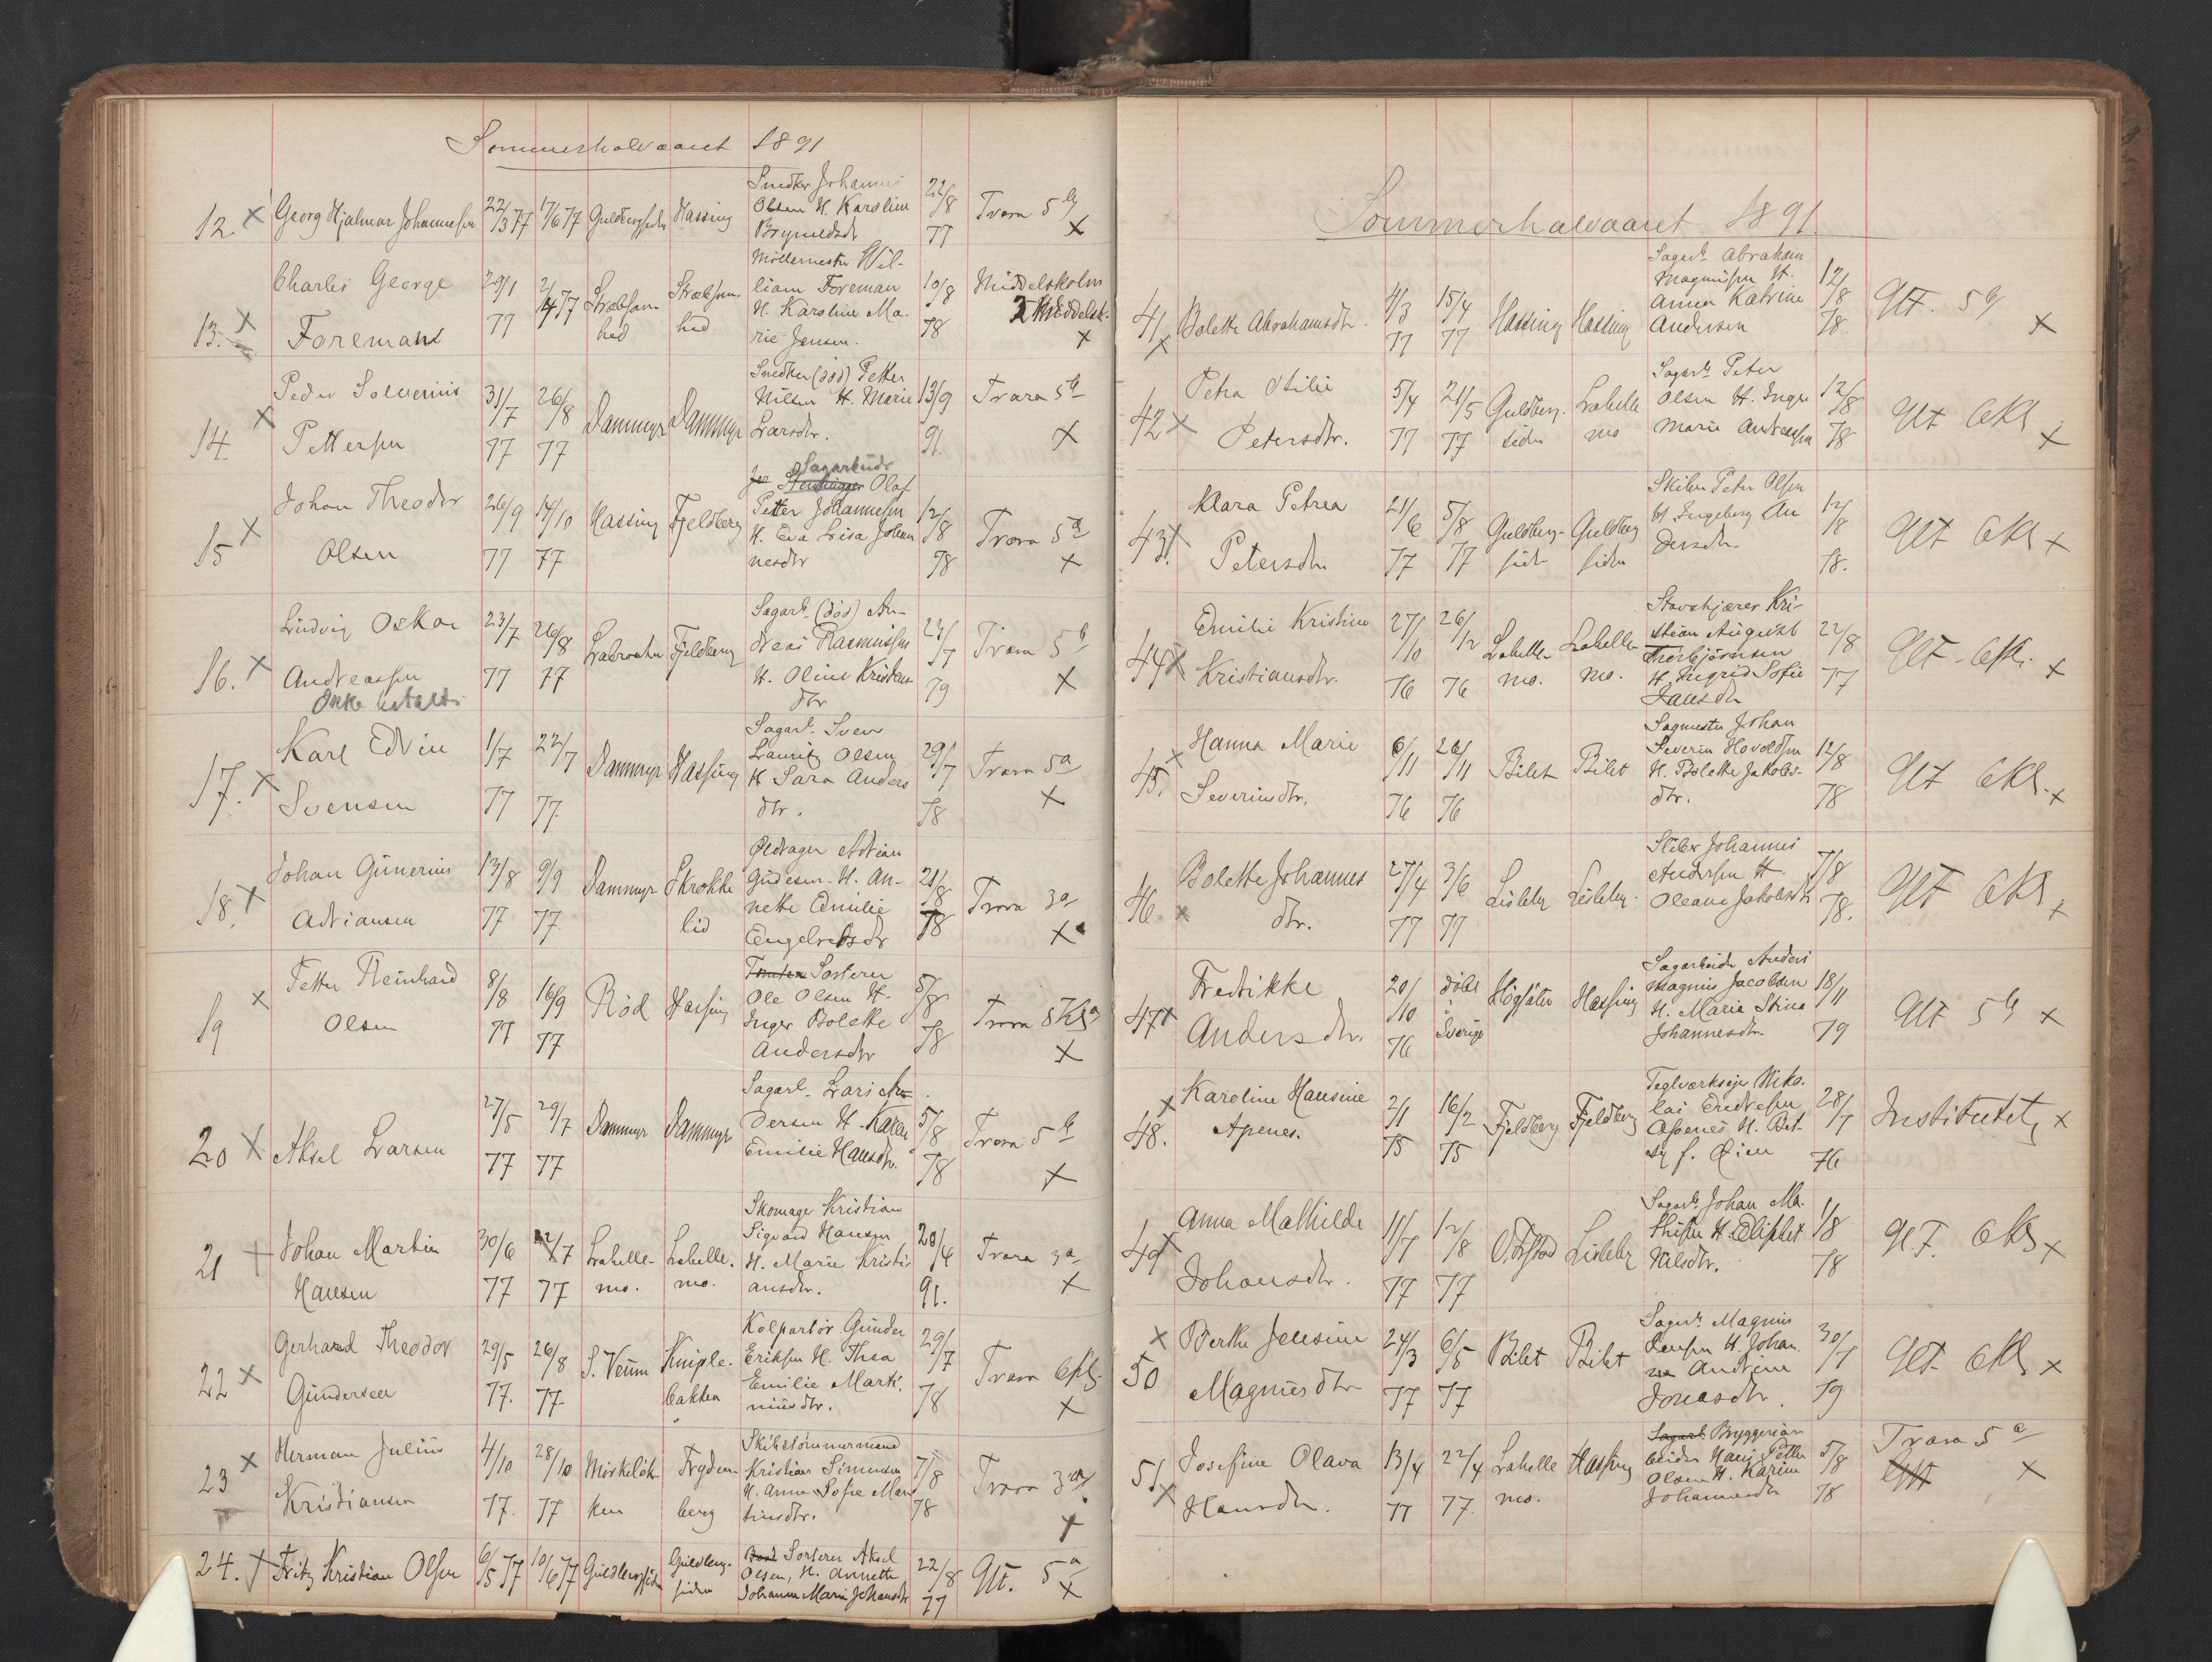 Sommerhalvaaret 1891
12. X Georg Hjalmar Johannesen 22/3 77 17/6 77 Guldbergsiden Hassing Snedker Johannes Olsen H. Karoline Brynildsdr 22/8 77 Trara 5 b X
13. X Charles George Foreman 29/1 77 2/4 77 Møllermester William Foreman H. Karoline Marie Jensen. 10/8 78 Middelskolen 2 Middelsk. X
14. X Peder Solverius Pettersen 31/7 77 26/8 77 Dammyr Dammyr Snedker (død) Petter Nilsen H. Marie Larsdtr. 13/9 91. Trara 5 b X
15 X Johan Theodor Olsen 26/9 77 14/10 77 Hassing Fjeldberg Sagarbeider Olaf Petter Johannesen H. Eva Lisa Johannesdtr 12/8 78 Trara 5 a X
16. X Ludvig Oskar Andreassen Ikke betalt 23/7 77 26/8 77 Fjeldberg Sagarb. (død) Andreas Rasmussen H. Oline Kristiansdtr 23/7 79 Trara 5 b X
17. X Karl Edvin Svensen 1/7 77 22/7 77. Dammyr Hassing Sagarb. Sven Lauritz Olsen H Sara Andersdtr. 29/7 78 Trara 5 a X
18. X Johan Gunerius Adriansen 13/8 77 9/9 77. Dammyr Skrokkelid Øldrager Adrian Gudesen. H. Annette Emilie Engelretsdr 21/8 78 Trara 3 a X
19 X Petter Reinhard Olsen 8/8 77 16/9 77 Rød Hassing Tomten Sorterer Ole Olsen H. Inger Bolette Andersdtr 5/8 78 Trara 5 Kl a X
20 X Aksel Larsen 27/5 77 29/7 77 Dammyr Dammyr Sagarb. Lars Andersen H. Karen Emilie Hansdtr. 5/8 78 Trara 5 b X
21 X Johan Martin Hansen 30/6 77 22/7 77 Labellemo. Labellemo. Skomager Kristian Sigvard Hansen H. Marie Kristiansdtr. 20/4 91. Trara 3 a X
22 X Gerhard Theodor Gundersen 29/5 77. 26/8 77. S. Veum Kniplebakken Kolportør Gunder Eriksen H. Thea Emilie Martiniusdtr. 29/7 78 Trara 6 Kl. X
23 X Herman Julius Kristiansen 4/10 77. 28/10 77 Mørkeløkken Trydenberg Skibstømmermand Kristian Simensen H. Anna Sofie Martinsdtr. 7/8 78 Trara 3 a X
24. X Fritz Kristian Olsen 6/5 77 10/6 77 Guldbergsiden Guldbergsiden Sorterer Aksel Olsen, H. Annette Johanne Marie Johansdtr 22/8 77 Glt. 5 a X
Sommerhalvaaret 1891
41. X Bolette Abrahamsdtr. 4/3 77 15/4 77 Hassing Hassing Sagarb. Abraham Magnussen H. Anna Katrine Andersen 12/8 78 Glt. 5 b X
42 X Petra Otilie Petersdtr. 5/4 77 21/5 77 Guldbergsiden Labellemo Sagarb. Peter Olsen H. Inger Marie Andreassen 12/8 78 Glt 6 Kl. X
43. X Klara Petrea Petersdtr 21/6 77 5/8 77 Guldbergsiden Guldbergsiden Peter Olsen H. Ingeborg Andersdtr. 12/8 78. Glt 6 Kl X
44 X Emilie Kristine Kristiansdtr. 27/10 76 26/12 76 Labellemo. Labellemo. Stavskjærer Kristian August Thorbjørnsen H. Ingrid Sofie Jansdtr 22/8 77 Glt. 6 Kl. X
45. X Hanna Marie Severinsdtr. 6/11 76 26/11 76 Bilet Bilet Sagmester Johan Severin H. Bolette Jakobsdtr. 12/8 78 Glt 6 Kl. X
46. X Bolette Johannesdtr. 27/4 77 3/6 77 Lisleby Lisleby. Johannes Andersen H. Oleane Jakobsdtr 7/8 78. Glt 6 Kl. X
47 X Fredrikke Andersdtr. 20/10 76 døbt i Sverige Hassing Sagarbeider Anders Magnus Jacobsen H. Maria Stina Johannesdtr. 18/11 79 Glt 5 b X
48. X Karoline Hansine Apenes. 2/1 75 16/2 75 Fjeldberg Fjeldberg Teglværkseier Nikolai Apenes H. Betsy f. Øien 28/7 76 Institutet, X
49 X Anna Mathilde Johansdtr. 11/7 77 12/8 77 Lisleby Sagarb. Johan H. Elisabet Nilsdtr. 1/8 78 Glt. 6 Kl X
50 X Berthe Jensine Magnusdtr 24/3 77 6/5 77 Bilet Bilet Sagarb. Magnus Jensen H. Johanne Andrine Jonasdtr. 30/7 79 Glt 6 Kl X
51. X Josefine Olava Hansdtr. 13/4 77 22/4 77. Labellemo. Hassing Sagarb. Bryggeriarbeider Hans Petter Olsen H. Karine Johannesdtr 5/8 78 Trara 5 a Glt X